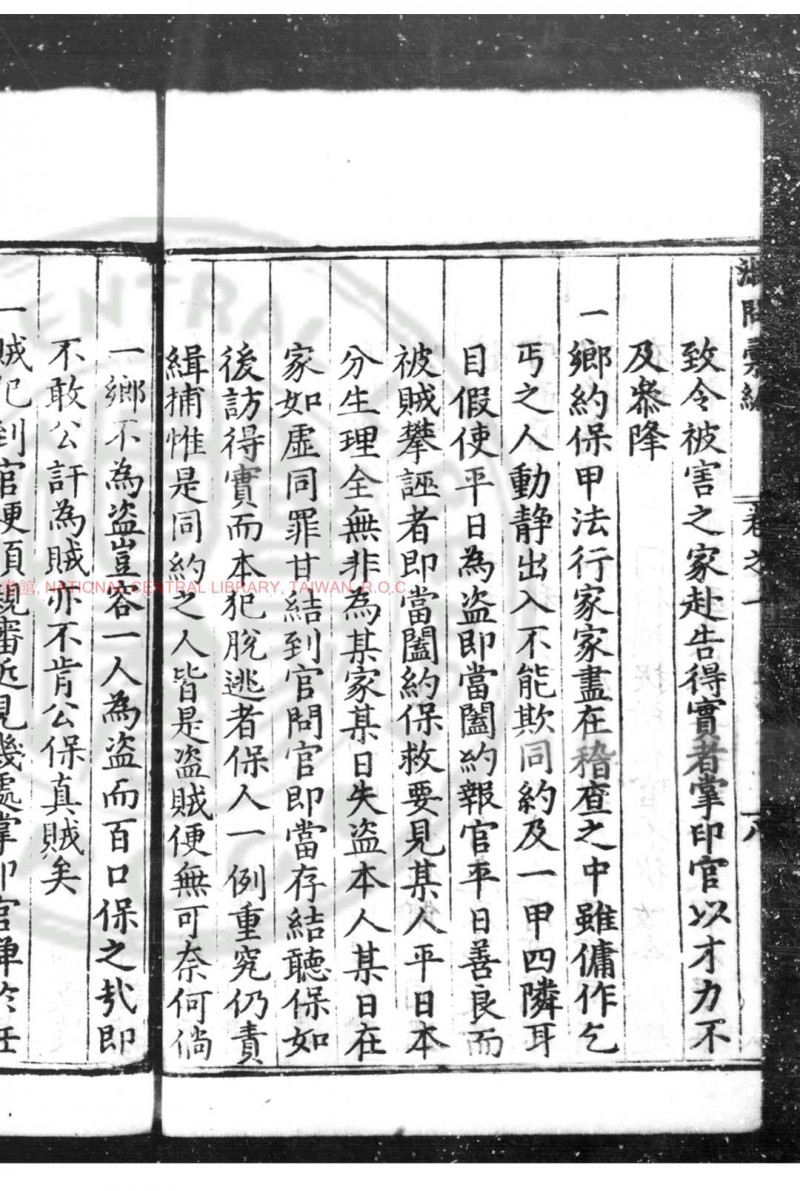 卷之一
致令被害之家赴告得實者掌印官以才力不
及叅降
一鄉約保甲法行家家盡在稽查之中雖傭作乞
丐之人動靜出入不能欺同約及一甲四隣耳
目假使平日為盜即當闔約報官平日善良而
被賊攀誣者即當闔約保救要見某人平日本
分生理全無非為某家某日失盜本人某日在
家如虛同罪甘結到官問官即當存結聽保如
後訪得實而本犯脫逃者保人一例重究仍責
緝捕惟是同約之人皆是盜賊便無可奈何倘
一鄉不為盜豈容一人為盜而百口保之哉即
不敢公訐為賊亦不肯公保真賊矣
一賊犯到官便須親審近見幾處掌印官單於任
NATIONAL CENTRAL LIBRARY, TAIWAN, R.O.C